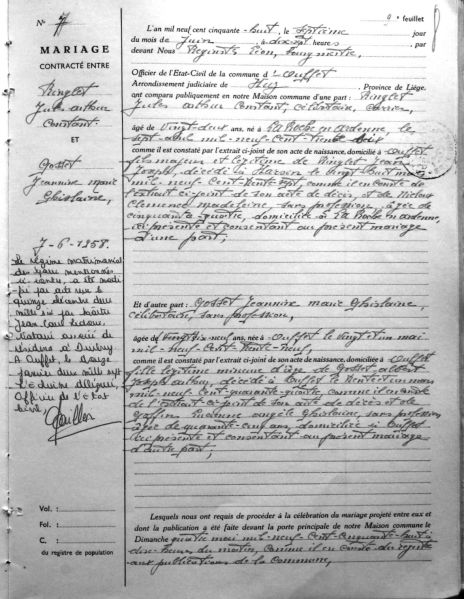 N° 7
MARIAGE
CONTRACTÉ ENTRE
Ninglet
Jules Arthur
Constant
ET
Gosset
Jeannine Marie
Ghislaine,
7-6-1958.
Le régime matrimonial
des époux mentionnés
ci-contre, a été modi-
fié par acte sur le
quinze décembre deux
mille six par Maître
Jean-Louis
Notaire
résidence à
A Ouffet, le douze
janvier deux mille sept
L'échevine déléguée,
Officier de l'état
civil
Vol. :
Fol. :
C. :
du registre de population
9e feuillet
L'an mil neuf cent cinquante-huit, le septième jour
du mois de Juin, à dix-sept heures, par
devant Nous Léon, bourgmestre,
Officier de l'Etat-Civil de la commune d' Ouffet
Arrondissement judiciaire de Huy, Province de Liége.
ont comparu publiquement en notre Maison commune d'une part : Ninglet
Jules Arthur Constant, célibataire, carrier,
âgé de vingt-deux ans, né à La Roche en Ardenne, le
sept avril mil-neuf-cent-trente
comme il est constaté par l'extrait ci-joint de son acte de naissance, domicilié à Ouffet
fils majeur et légitime de Ninglet Jean
Joseph, décédé à le vingt-huit mai
mil-neuf-cent-trente-sept, comme il en conste de
l'extrait ci-joint de son acte de décès, et de
Clémence Madeleine, sans profession, âgée de
cinquante-quatre, domiciliée à La Roche en Ardenne,
ici présente et consentant au présent mariage
d'une part,
Et d'autre part : Gosset Jeannine Marie Ghislaine,
célibataire, sans profession,
âgée de vingt-neuf ans, née à Ouffet le vingt et un mai
mil-neuf-cent-trente-neuf,
comme il est constaté par l'extrait ci-joint de son acte de naissance, domiciliée à Ouffet
fille légitime mineure d'âge de Gosset Albert
Joseph Arthur, décédé à Ouffet le trente et un mars
mil-neuf-cent-quarante-quatre, comme il en conste
de l'extrait ci-joint de son acte de décès et de
Lucienne Angèle Ghislaine, sans profession,
âgée de quarante-cinq ans, domiciliée à Ouffet
ici présente et consentant au présent mariage
d'autre part,
Lesquels nous ont requis de procéder à la célébration du mariage projeté entre eux et
dont la publication a été faite devant la porte principale de notre Maison commune le
Dimanche quatre mai mil-neuf-cent-cinquante-huit à
dix heures du matin, comme il en conste du registre
aux publications de la commune,